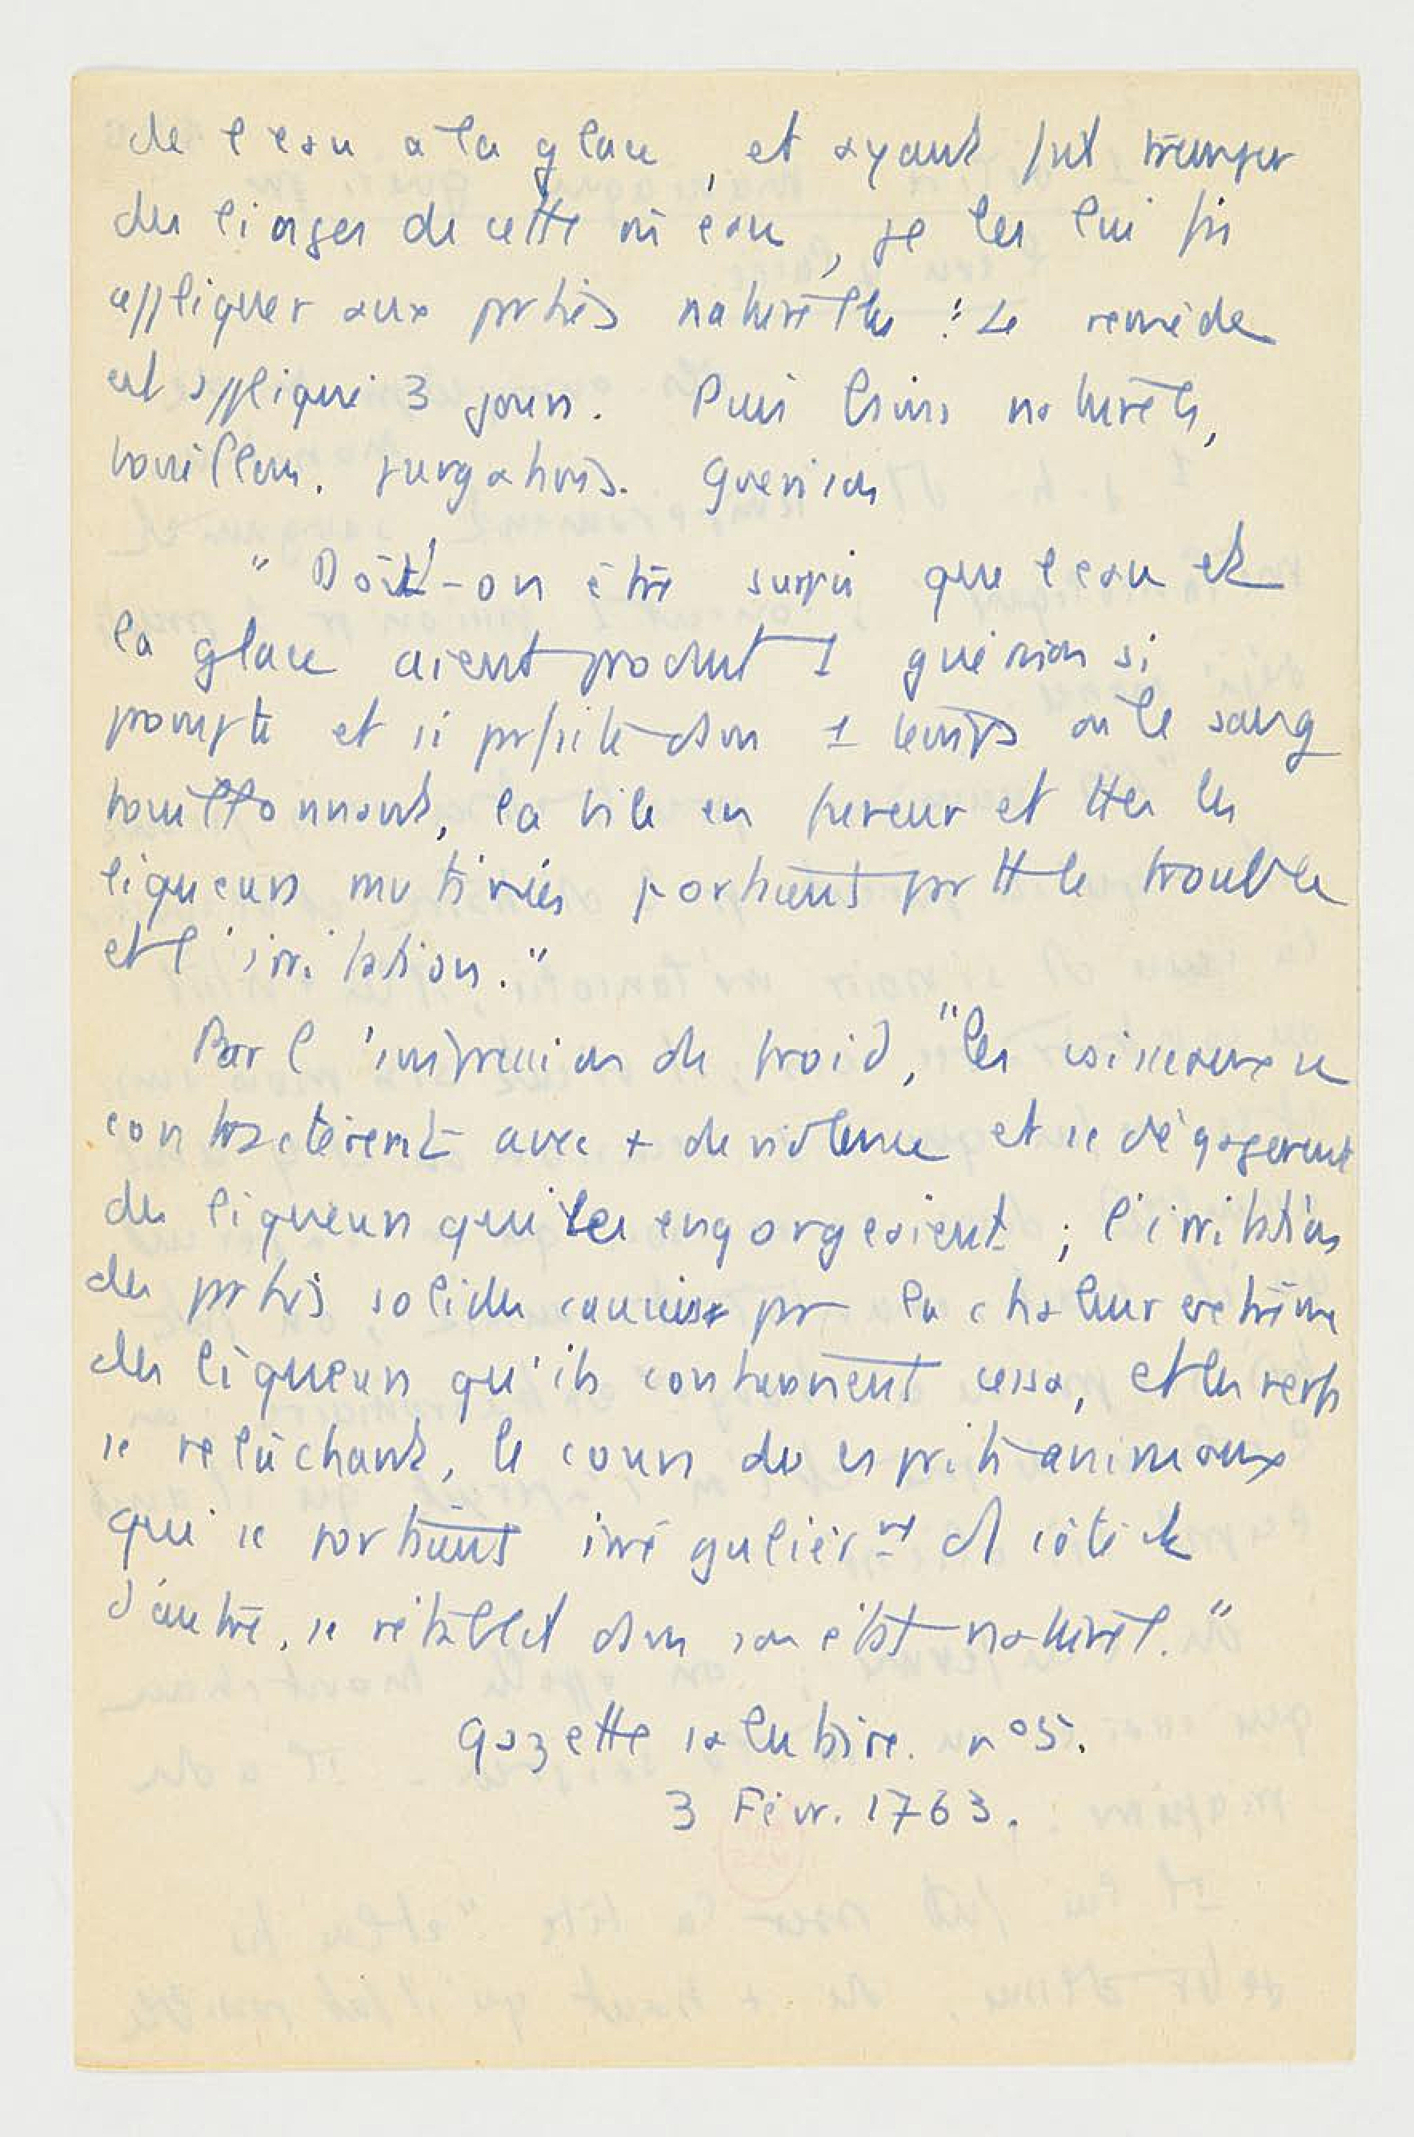 de l'eau a la glace, et ayant fait tremper
des linges de cette m̂ eau, je les lui fis
appliquer aux parties naturelles". Le remède
est appliqué 3 jours. Puis bains naturels,
bouillons. purgations. Guérison
"Doit-on être surpris que l'eau et
la glace aient produit 1 guérison si
prompte et si parfaite dans 1 temps où le sang
bouillonnant, la bile en fureur et ttes les
liqueurs mutinées portaient prtt le trouble
et l'irritation."
Par l'impression du froid, "les vaisseaux se
contractèrent avec + de violence et se dégagerent
des liqueurs qui les engorgeaient ; l'irritation
des parties solides causée par la chaleur extrême
des liqueurs qu'ils contenaient cessa, et les nerfs
se relâchant, le cours des esprits animaux
qui se portaient irrégulièrt d'1 côté et
d'autre, se rétablit dans son état naturel."
Gazette salutaire. n°5.
3 Févr. 1763.